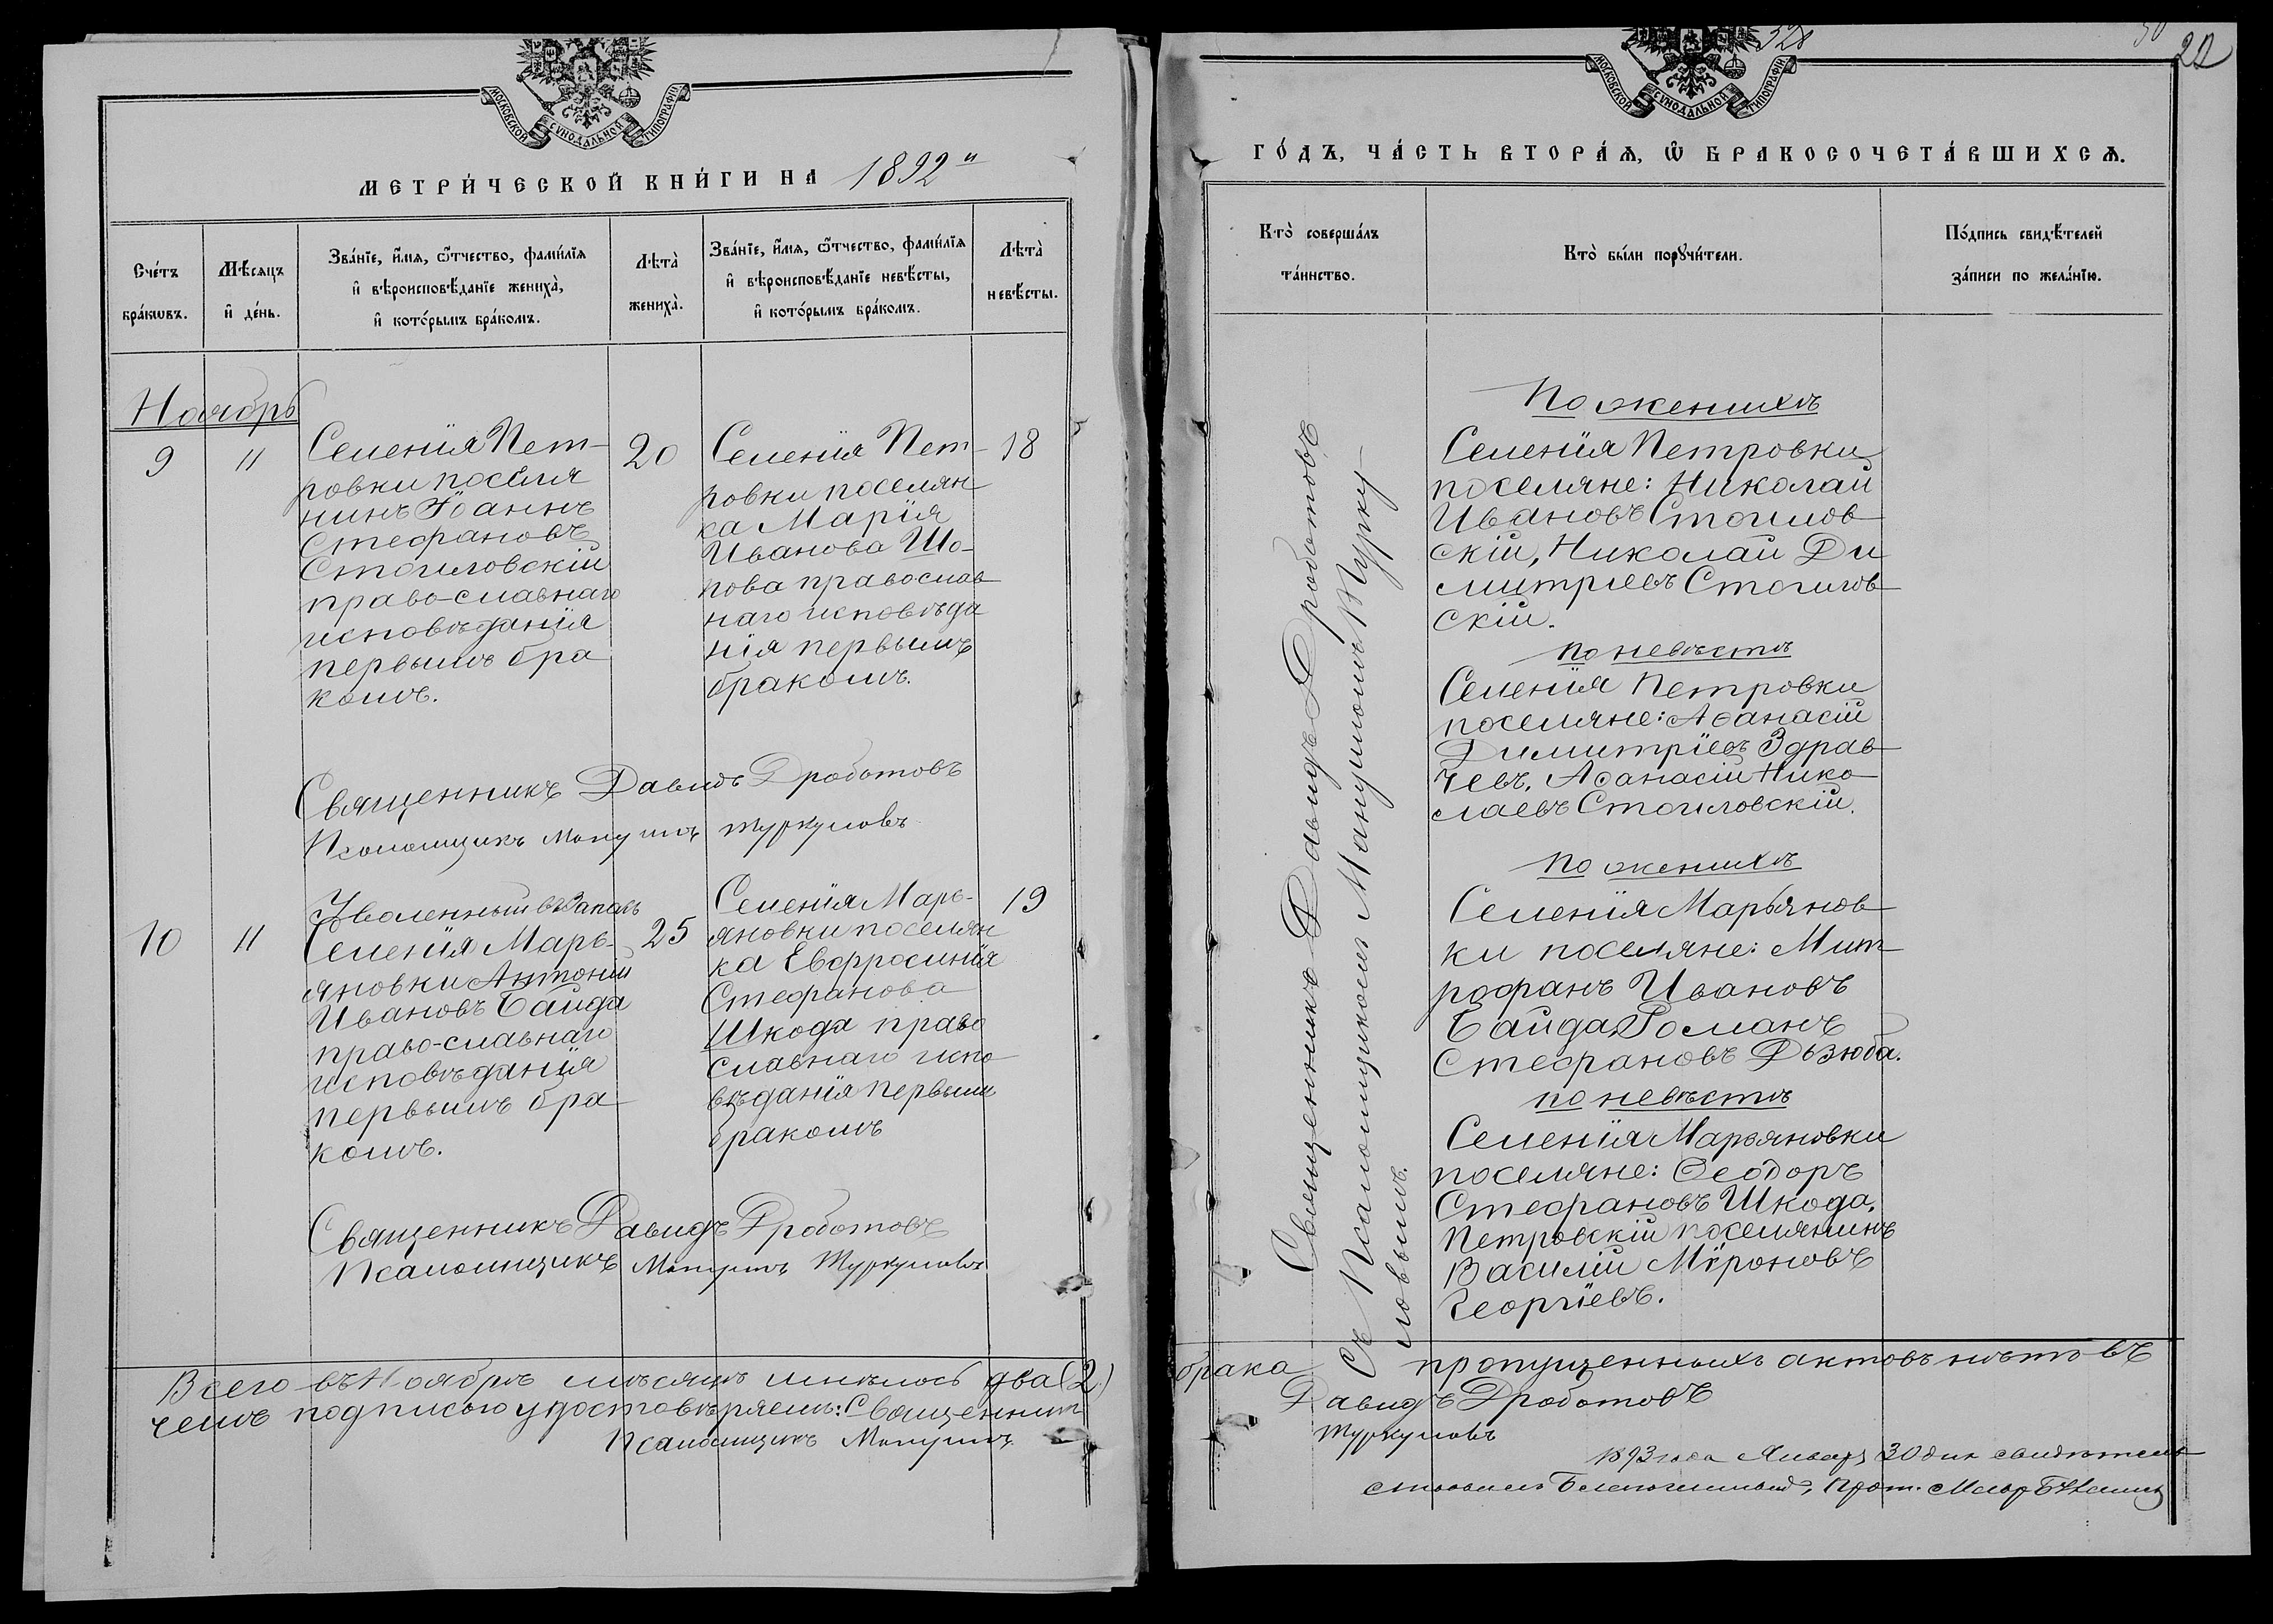 МОСКОВСКОЙ СѴНОДАЛЬНОЙ ТИПОГРАФІИ
МЕТРИ́ЧЕСКОЙ КНИ́ГИ НА 1892
Сче́тъ бра́кωвъ.
Мѣ́сяцъ и҆ де́нь.
Зва́нїе, и҆́мя, ѻ҆́тчество, фами́лїя
и҆ вѣроисповѣ́данїе жениха̀,
и҆ кото́рымъ бра́комъ.
Лѣта̀ жениха̀.
Зва́нїе, и҆́мя, ѻ҆́тчество, фами́лїя
и҆ вѣроисповѣ́данїе невѣ́сты,
и҆ кото́рымъ бра́комъ.
Лѣта̀ невѣ́сты.
Ноябрь
9
11
Селенія Пет-
ровки поселя
нинъ Іоаннъ
Стефановъ
Стоиловскій
право-славнаго
исповѣданія
первымъ бра
комъ.
20
Селенія Пет-
ровки поселян
ка Марія
Иванова Шо-
пова православ
наго исповѣда
нія первымъ
бракомъ.
18
Священникъ Давидъ Дроботовъ
Псаломщикъ Мануилъ Туркуловъ
10
11
Уволенный въ Запасъ
Селенія Марь-
яновки Антоній
Ивановъ Байда
право-славнаго
исповѣданія
первымъ бра
комъ.
25
Селенія Марь-
яновки поселян
ка Евфросинія
Стефанова
Шкода право
славнаго испо
вѣданія первымъ
бракомъ
19
Священникъ Давидъ Дроботовъ
Псаломщикъ Мануилъ Туркуловъ
Всего въ Ноябрѣ мѣсяцѣ имѣлось два (2)
чемъ подписью удостовѣряемъ: Священникъ
Псаломщикъ Мануилъ
328
22
МОСКОВСКОЙ СѴНОДАЛЬНОЙ ТИПОГРАФІИ
ГО́ДЪ, ЧА́СТЬ ВТОРА́Я, Ѽ БРАКОСОЧЕТА́ВШИХСЯ.
Кто̀ соверша́лъ
та́инство.
Кто̀ бы́ли порꙋчи́тели.
По́дпись свидѣ́телей
за́писи по жела́нїю.
Священникъ Давидъ Дроботовъ
съ Псаломщикомъ Мануиломъ Турку-
ловымъ.
По женихѣ
Селенія Петровки
поселяне: Николай
Ивановъ Стоилов
скій, Николай Ди
митріевъ Стоилов
скій.
по невѣстѣ
Селенія Петровки
поселяне: Аѳанасій
Димитріевъ Здрав
чевъ, Аѳанасій Нико
лаевъ Стоиловскій.
По женихѣ
Селенія Марьянов
ки поселяне: Мит
рофанъ Ивановъ
Байда, Романъ
Стефановъ Дьзюба.
по невѣстѣ
Селенія Марьяновки
поселяне: Ѳеодоръ
Стефановъ Шкода,
Петровскій поселянинъ
Василій Мѵроновъ
Георгіевъ.
брака пропущенныхъ актовъ нѣтъ въ
Давидъ Дроботовъ
Туркуловъ
1893 года Января 30 дня свидѣтель
ствовалъ Благочинный, Прот.